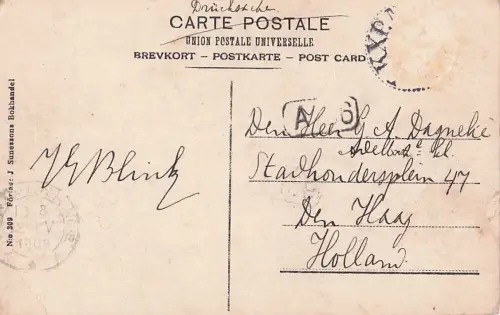 Drucksache
CARTE POSTALE
UNION POSTALE UNIVERSELLE
BREVKORT – POSTKARTE – POST CARD
N:o 309 Förlag: J Sunessons Bokhandel
Den Heer G. A. Dagneke
Stadhoudersplein 47
Den Haag
Holland